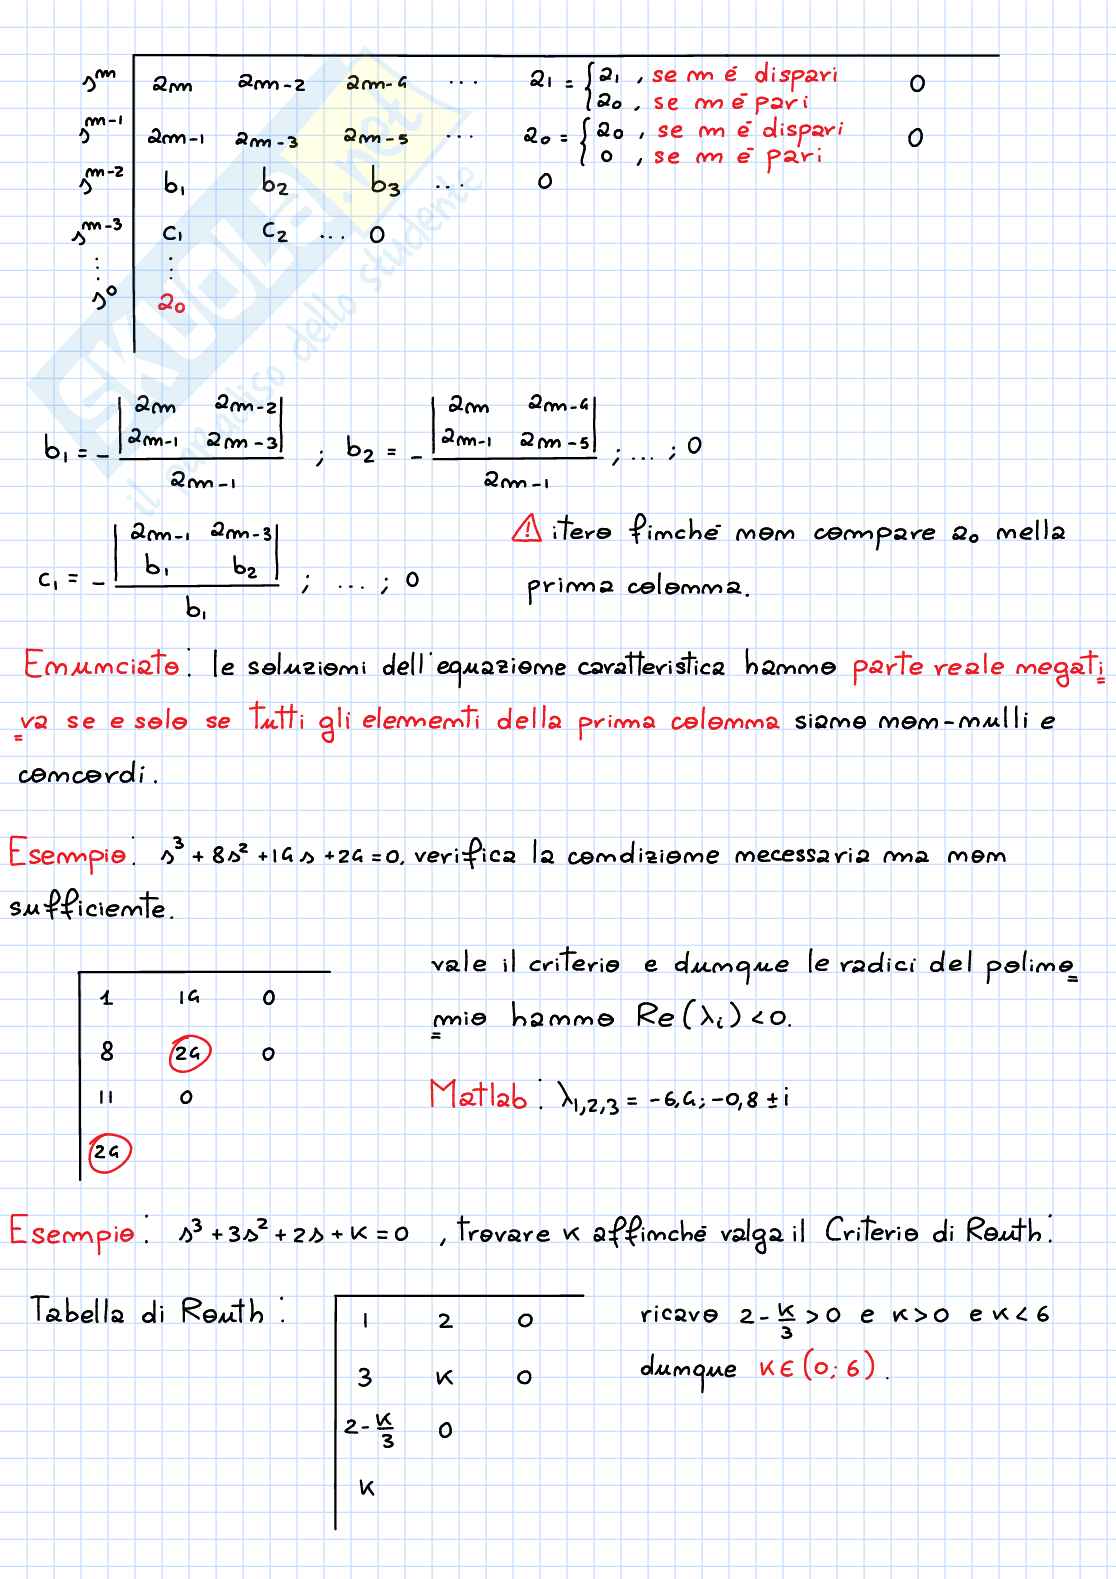 sⁿ aₙ aₙ₋₂ aₙ₋₄ ... a₁ = { a₁, se n é dispari 0
a₀, se n é pari
sⁿ⁻¹ aₙ₋₁ aₙ₋₃ aₙ₋₅ ... a₀ = { a₀, se n é dispari 0
0, se n é pari
sⁿ⁻² b₁ b₂ b₃ ... 0
sⁿ⁻³ c₁ c₂ ... 0
⋮ ⋮
s⁰ a₀
SKUOLA.net
il paradiso dello studente
b₁ = - |aₙ aₙ₋₂; aₙ₋₁ aₙ₋₃| / aₙ₋₁ ; b₂ = - |aₙ aₙ₋₄; aₙ₋₁ aₙ₋₅| / aₙ₋₁ ; ... ; 0
c₁ = - |aₙ₋₁ aₙ₋₃; b₁ b₂| / b₁ ; ... ; 0
⚠ itero finché non compare a₀ nella
prima colonna.
Enunciato: le soluzioni dell'equazione caratteristica hanno parte reale negati
va se e solo se tutti gli elementi della prima colonna siano non-nulli e
concordi.
Esempio: s³ + 8s² + 14s + 24 = 0, verifica la condizione necessaria ma non
sufficiente.
vale il criterio e dunque le radici del polino
nio hanno Re(λᵢ) < 0.
1 14 0
8 24 0
11 0
24
Matlab: λ₁,₂,₃ = -6,4; -0,8 ± i
Esempio: s³ + 3s² + 2s + K = 0 , trovare K affinché valga il Criterio di Routh:
Tabella di Routh:
1 2 0
3 K 0
2 - K/3 0
K
ricavo 2 - K/3 > 0 e K > 0 e K < 6
dunque K ∈ (0; 6).